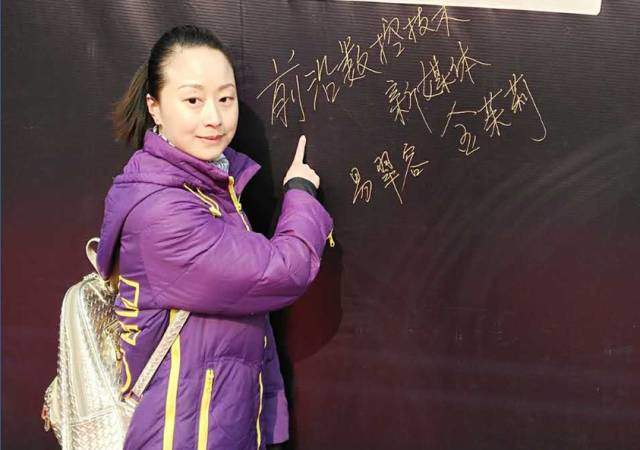 前沿数控技术
新媒体
金茉莉
易翠容